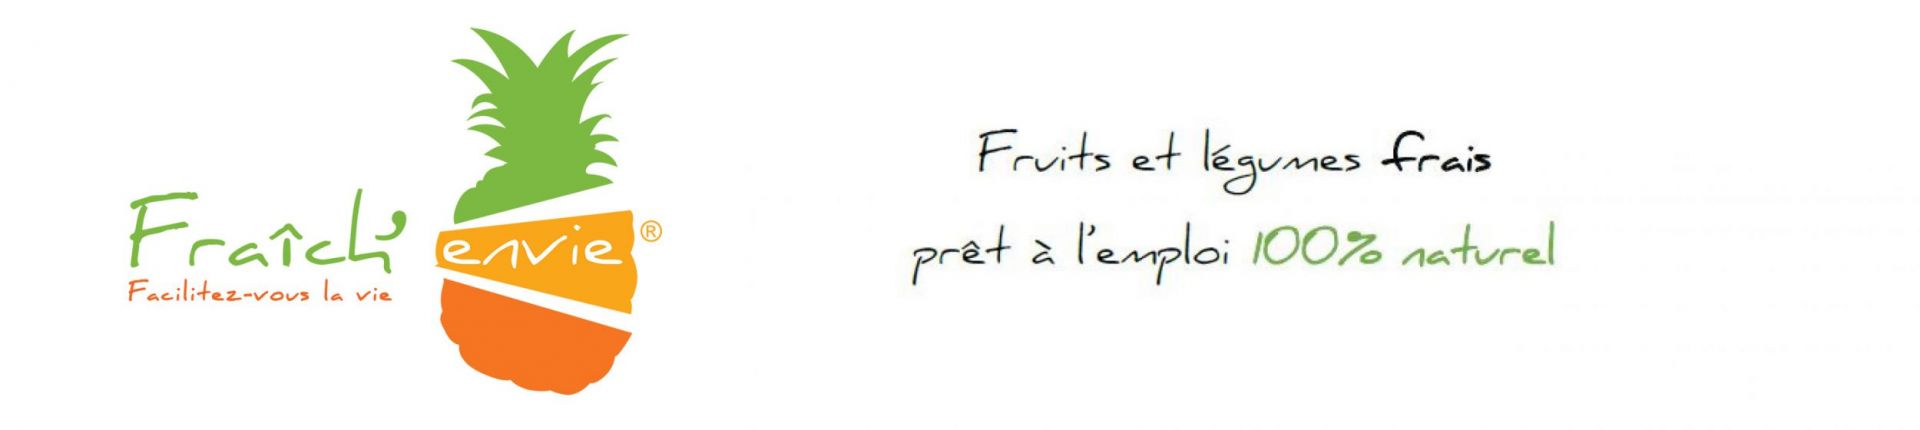 Fraîch' envie®
Facilitez-vous la vie
Fruits et légumes frais
prêt à l'emploi 100% naturel